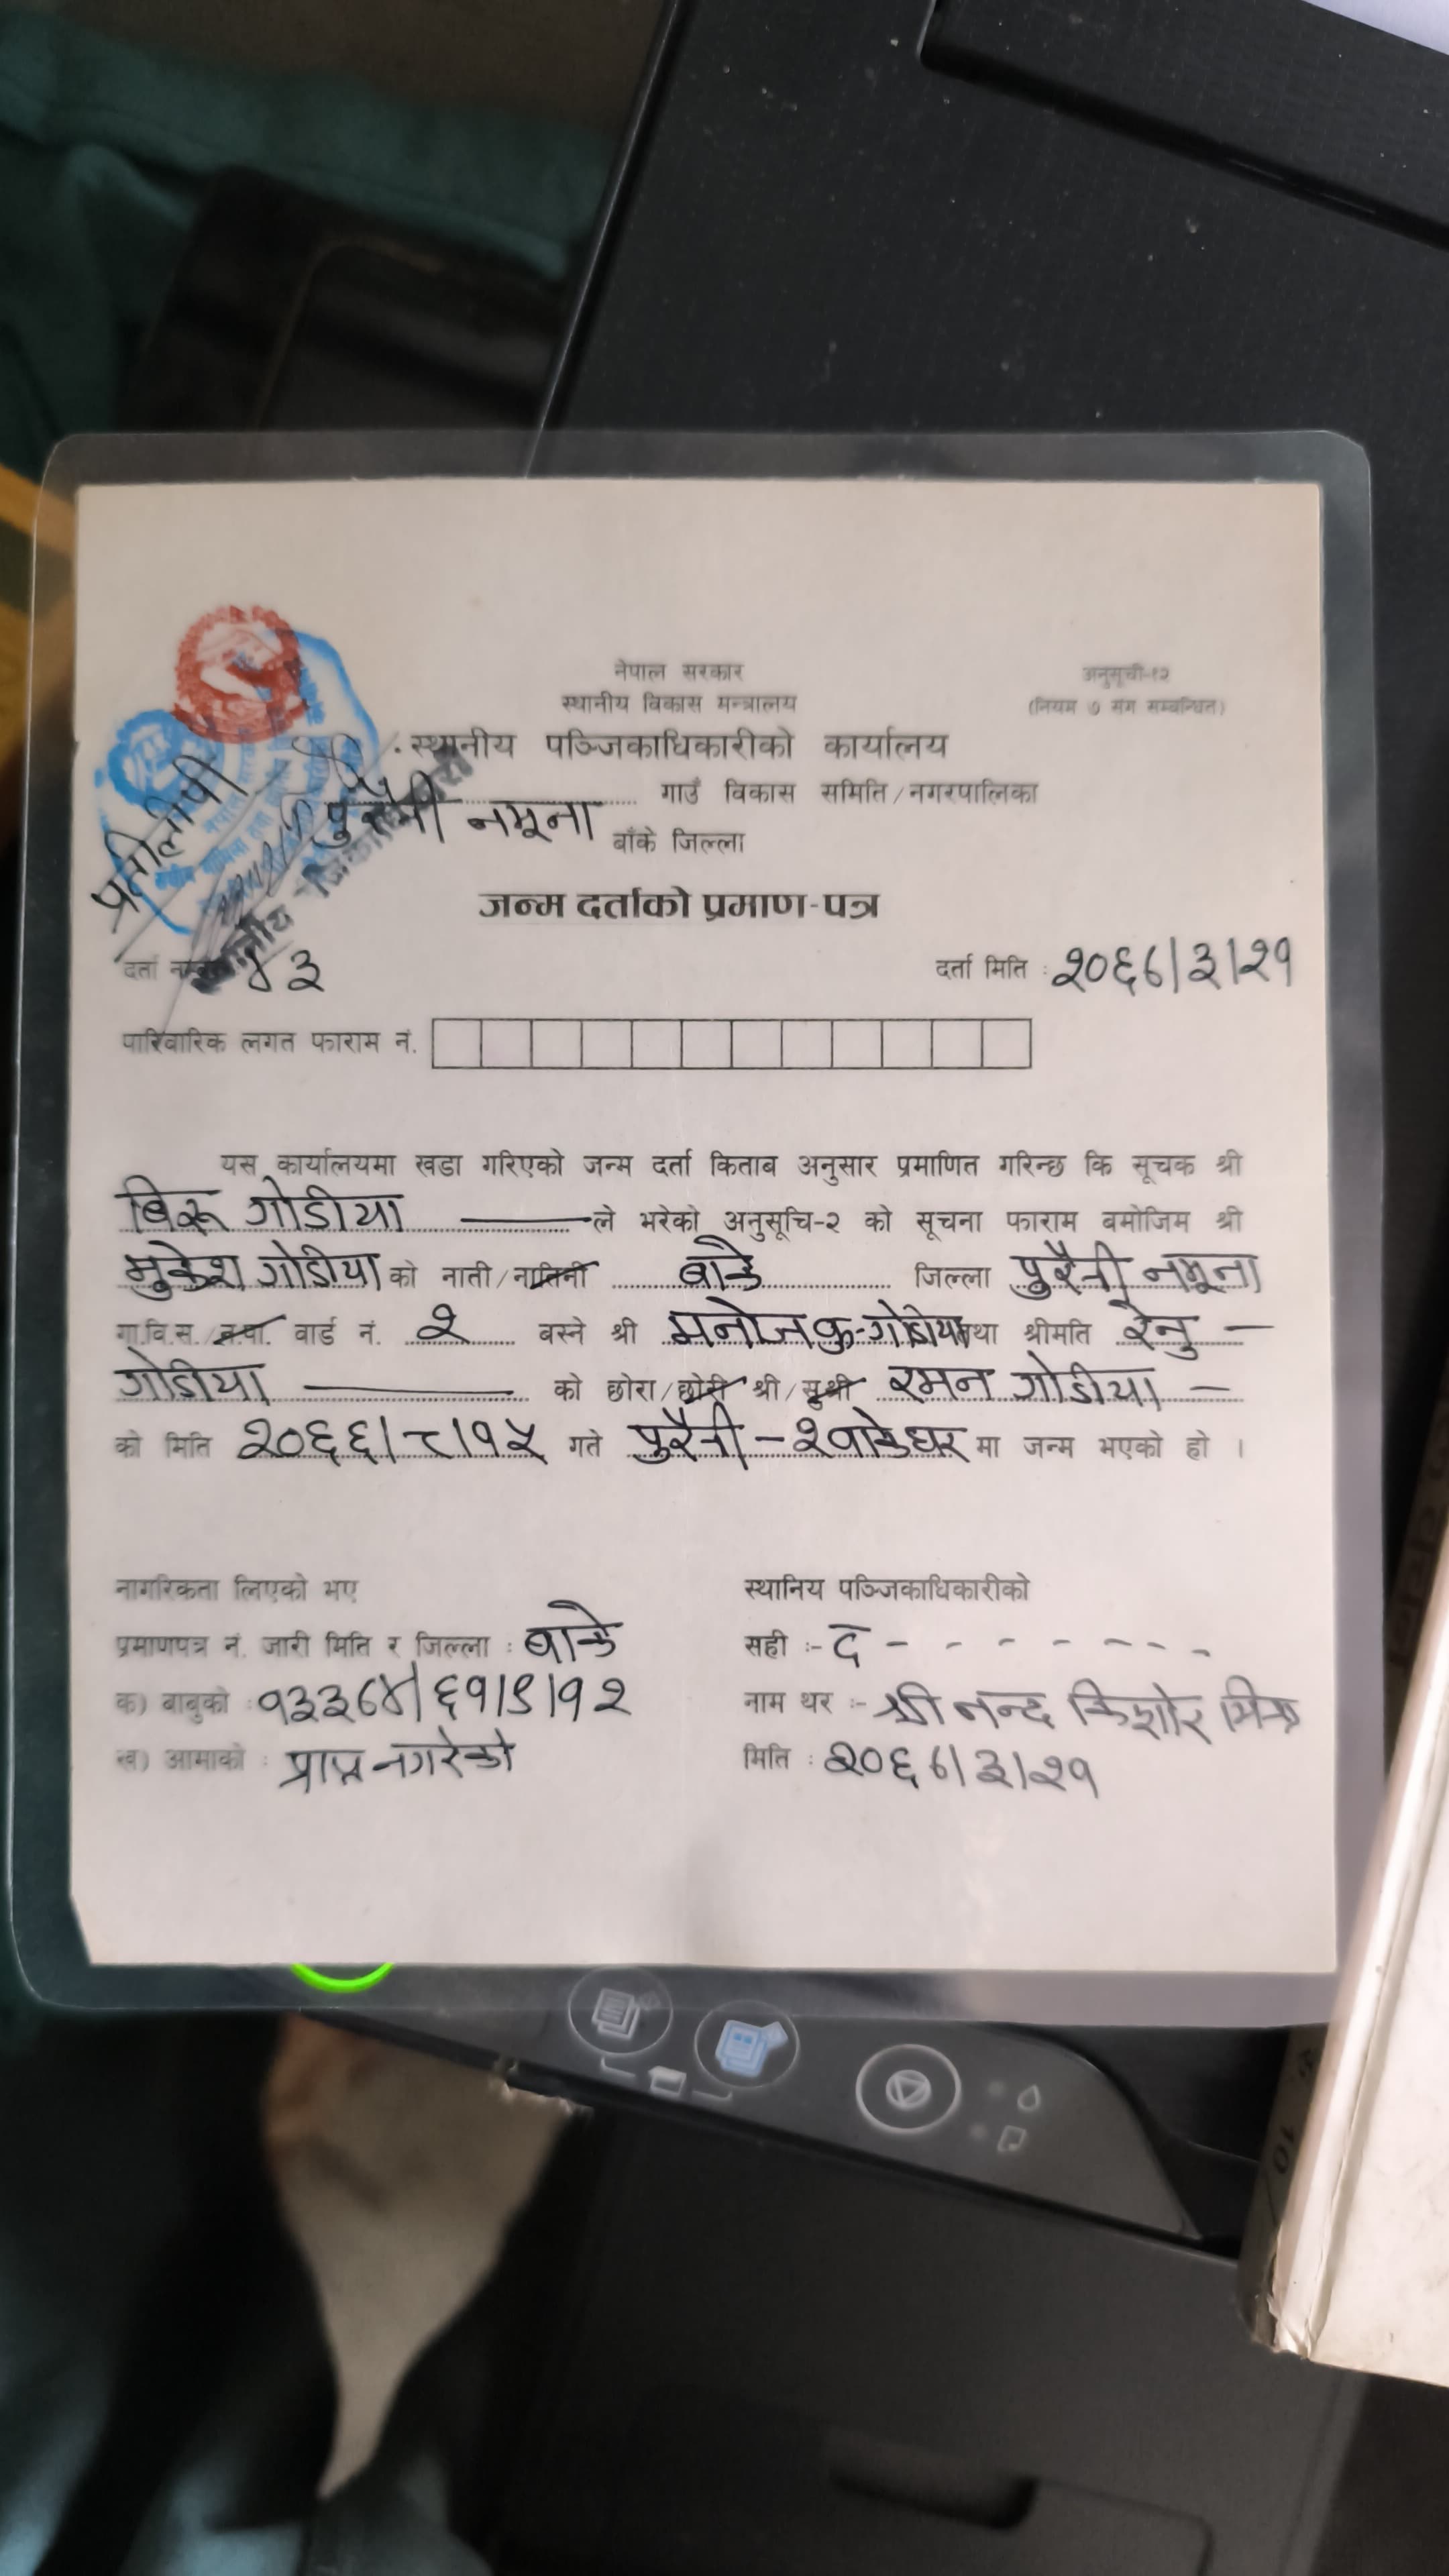 नेपाल सरकार
अनुसूची-१२
स्थानीय विकास मन्त्रालय
(नियम ७ संग सम्बन्धित)
स्थानीय पञ्जिकाधिकारीको कार्यालय
पुरैनी नमूना गाउँ विकास समिति/नगरपालिका
बाँके जिल्ला
प्रतीलीपी
जन्म दर्ताको प्रमाण-पत्र
दर्ता ४३ दर्ता मिति : २०६८।३।२१
पारिवारिक लगत फाराम नं.
यस कार्यालयमा खडा गरिएको जन्म दर्ता किताब अनुसार प्रमाणित गरिन्छ कि सूचक श्री
बिरू गोडीया ले भरेको अनुसूचि-२ को सूचना फाराम बमोजिम श्री
मुकेश गोडीया को नाती/नातिनी बाके जिल्ला पुरैनी नमूना
गा.वि.स./न.पा. वार्ड नं. २ बस्ने श्री मनोज कु-गोडीया तथा श्रीमति रेनु -
गोडीया को छोरा/छोरी श्री/सुश्री रमन गोडीया -
को मिति २०६६।८।१५ गते पुरैनी - २ बाके घर मा जन्म भएको हो ।
नागरिकता लिएको भए
स्थानिय पञ्जिकाधिकारीको
प्रमाणपत्र नं. जारी मिति र जिल्ला : बाके
सही :- द - - - - - - - -
क) बाबुको : १३३६४।६१।९।१२
नाम थर :- श्री नन्द किशोर मिश्र
ख) आमाको : प्राप्त नगरेको
मिति : २०६८।३।२१